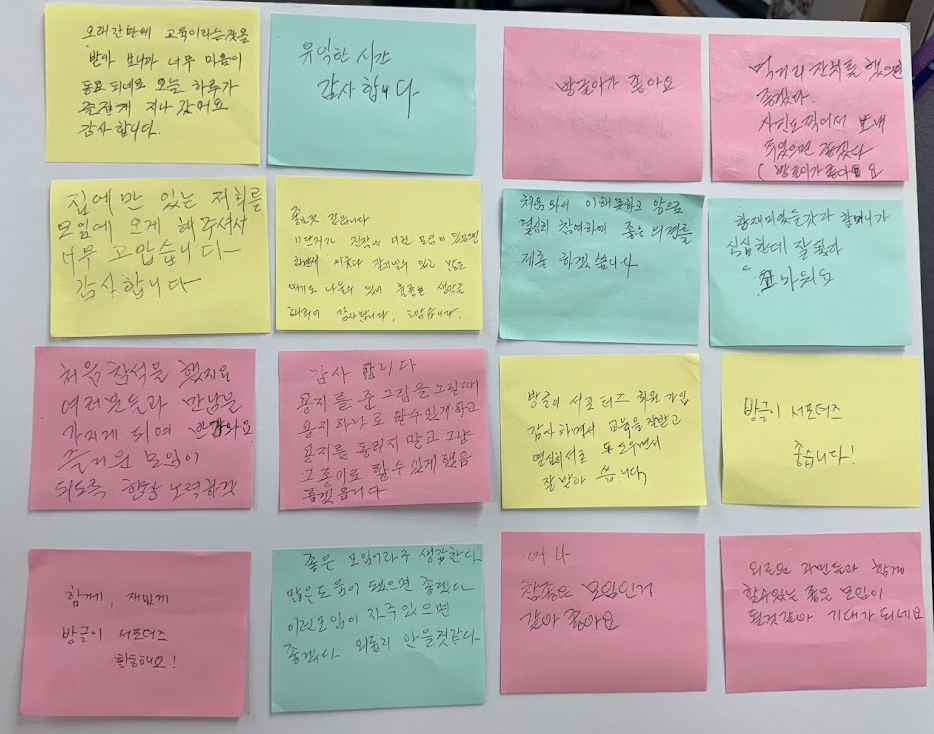 오래간만에 교육이라는것을
받아 보니까 너무 마음이
동요 되네요 오늘 하루가
즐겁게 지나 갔어요
감사 합니다.
유익한 시간
감사 합니다
방글이가 좋아요
먹거리 잔치를 했으면
좋겠다.
사진도 찍어서 보내
주었으면 좋겠다
(방글이가 좋아요
집에만 있는 저희를
모임에 오게 해주셔서
너무 고맙습니다~
감사합니다
좋은것 같습니다
11단지가 진작에 이런 모임이 있었으면
하면서 이웃과 같이 있고 많은
얘기도 나눌수 있어 훌륭한 생각을
감사합니다, 고맙습니다.
처음 와서 이해 못하고 앞으로
열심히 참여하여 좋은 의견을
제출 하겠습니다
참재미있는것같 할머니가
심심한데 잘 됬다
고마워요
처음 참석을 했지요
여러분들과 만남을
가지게 되여 반갑워요
즐거운 모임이
되도록 한달 노력하겠
감사 합니다
용지를 준 그림을 그릴때
용지 하나로 할수 있게 하고
용지를 돌리지 말고 그냥
그 종이로 할수 있게 했음
좋겠읍니다
방글이 서포터즈 회원 가입
감사하면서 교육을 잘받고
열심히 서로 도우면서
잘 받아 씁니다,
방글이 서포터즈
좋습니다!
함께, 재밌게
방글이 서포터즈
활동해요!
좋은 모임이라구 생각한다
많은 도움이 됐으면 좋겠다
이런모임이 자주 있으면
좋겠다 외롭지 안을것같다
여 나
참좋은 모임인거
같아 좋아요
외로운 주민들과 함께
할수있는 좋은 모임이
될것같아 기대가 되네요